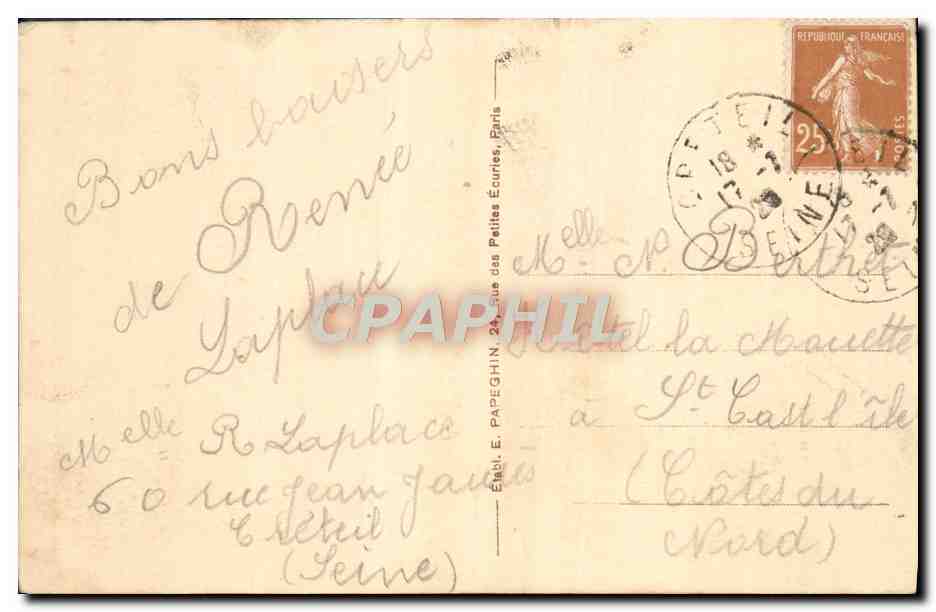 Bons baisers
de Renée
Laplace
Melle R Laplace
60 rue Jean Jaurès
Créteil
(Seine)
Établ. E. PAPEGHIN. 24, Rue des Petites Écuries, Paris
REPUBLIQUE FRANÇAISE
25
POSTES
CRETEIL
18 *
SEINE
Melle N. Berthet
Hôtel la Mouette
à St Cast l'île
(Côtes du
Nord)
CPAPHIL